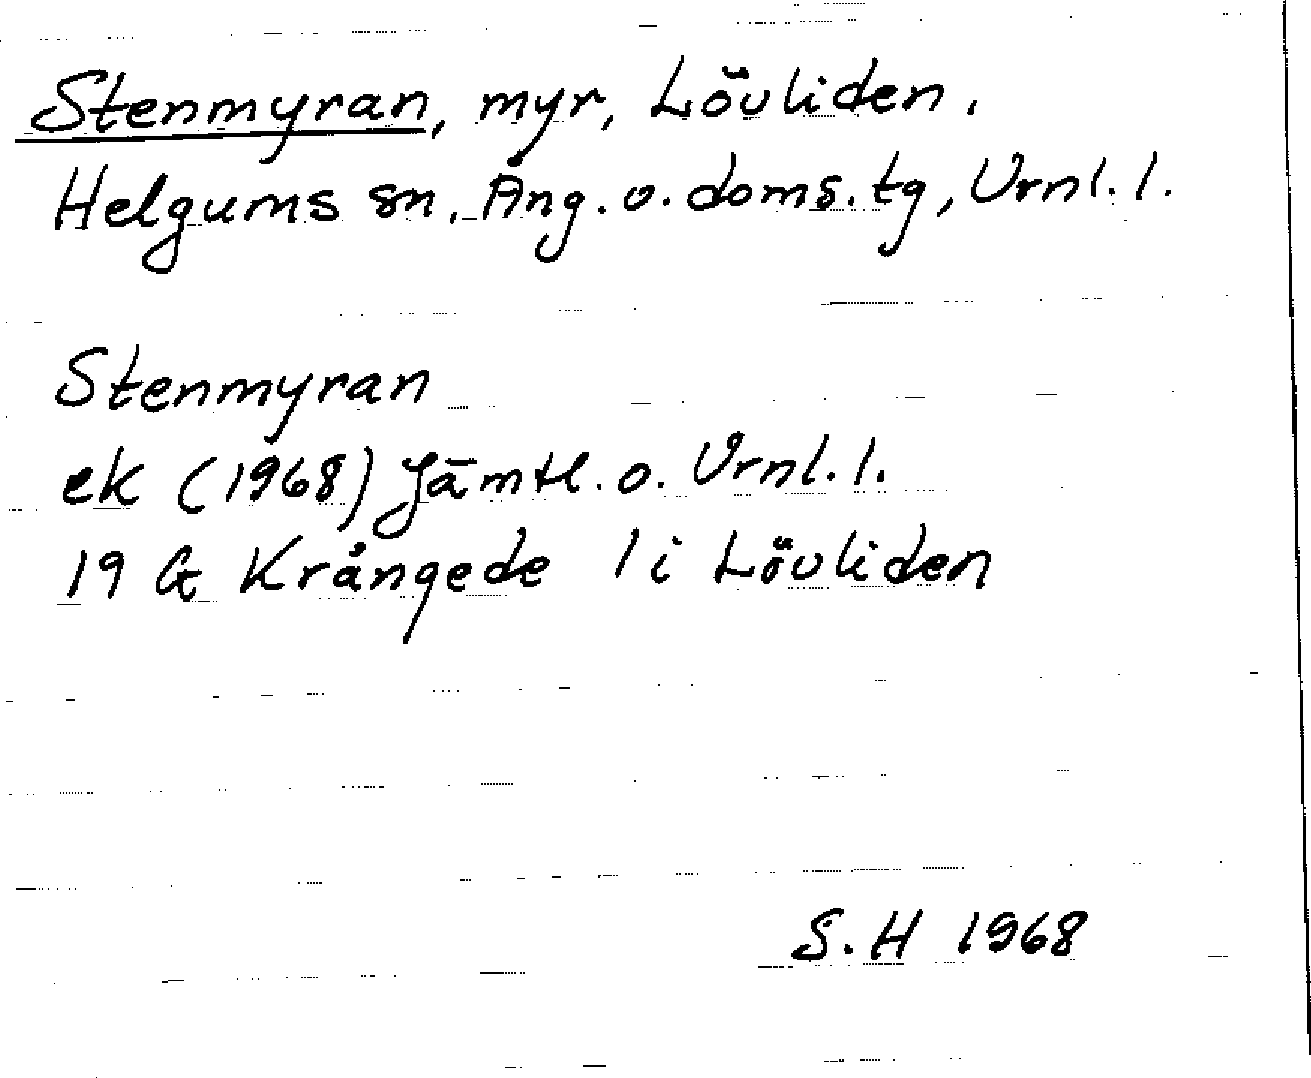 Stenmyran, myr, Lövliden.
Helgums sn. Ång. v. doms. tg, Vrnl. l.
Stenmyran
ek (1968) Jämtl. o. Vrnl. l.
19 G Krångede 1 i Lövliden
S. H 1968